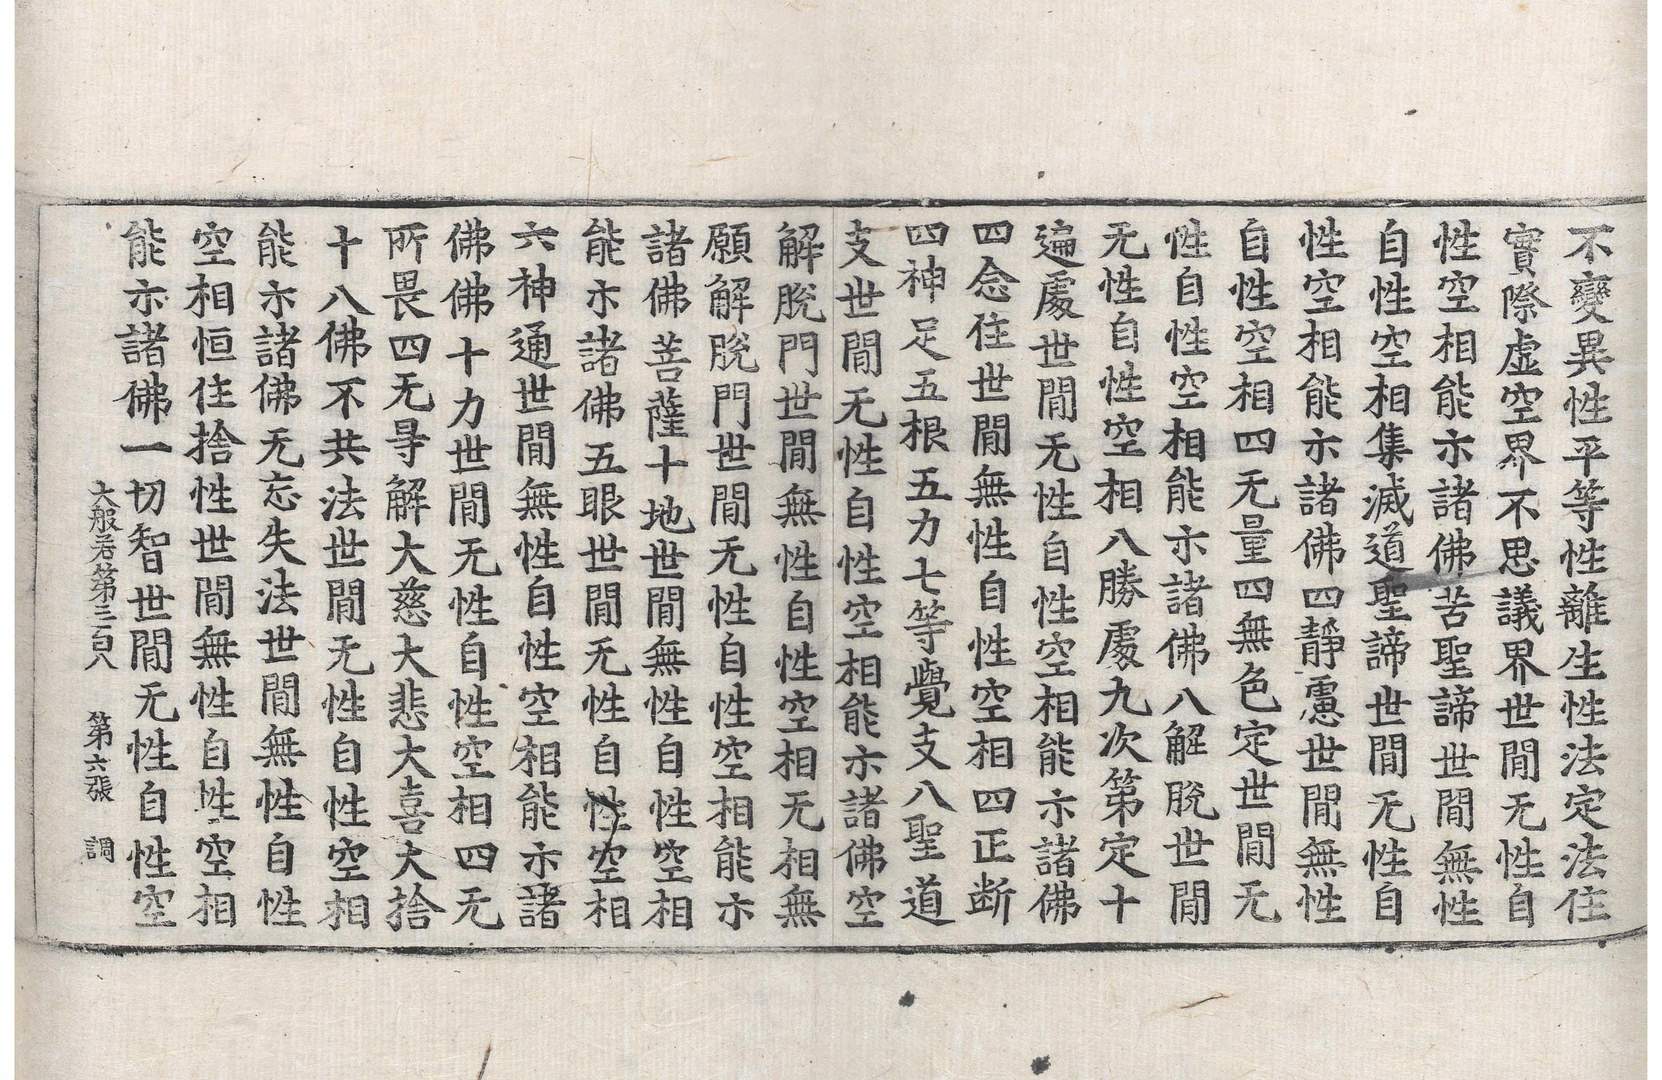 不變異性平等性離生性法定法住
實際虛空界不思議界世間无性自
性空相能示諸佛苦聖諦世間無性
自性空相集滅道聖諦世間无性自
性空相能示諸佛四靜慮世間無性
自性空相四无量四無色定世間无
性自性空相能示諸佛八解脫世間
无性自性空相八勝處九次第定十
遍處世間无性自性空相能示諸佛
四念住世間無性自性空相四正断
四神足五根五力七等覺支八聖道
支世間无性自性空相能示諸佛空
解脫門世間無性自性空相无相無
願解脫門世間无性自性空相能示
諸佛菩薩十地世間無性自性空相
能示諸佛五眼世間无性自性空相
六神通世間無性自性空相能示諸
佛佛十力世間无性自性空相四无
所畏四无㝵解大慈大悲大喜大捨
十八佛不共法世間无性自性空相
能示諸佛无忘失法世間無性自性
空相恒住捨性世間無性自性空相
能示諸佛一切智世間无性自性空
大般若第三百八 第六張 調